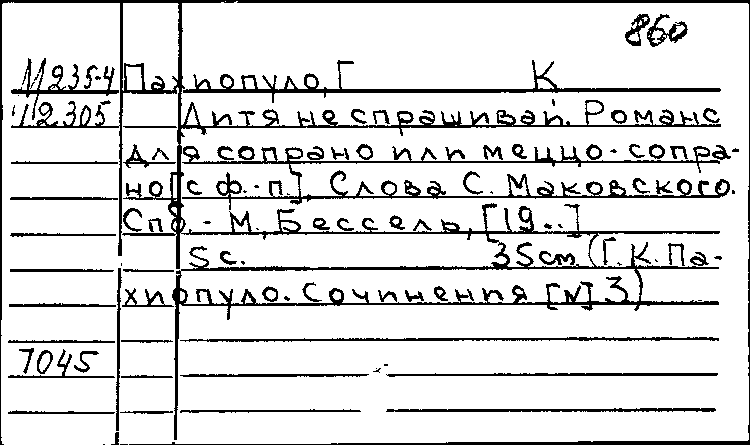 860
М 235-4 Пахиопуло, Г К
112305 Дитя не спрашивай. Романс
для сопрано или меццо-сопра-
но [с ф.-п.]. Слова С. Маковского.
Спб. - М., Бессель, [19..]
5 с. 35 см (Г. К. Па-
хиопуло. Сочинения [№] 3)
7045